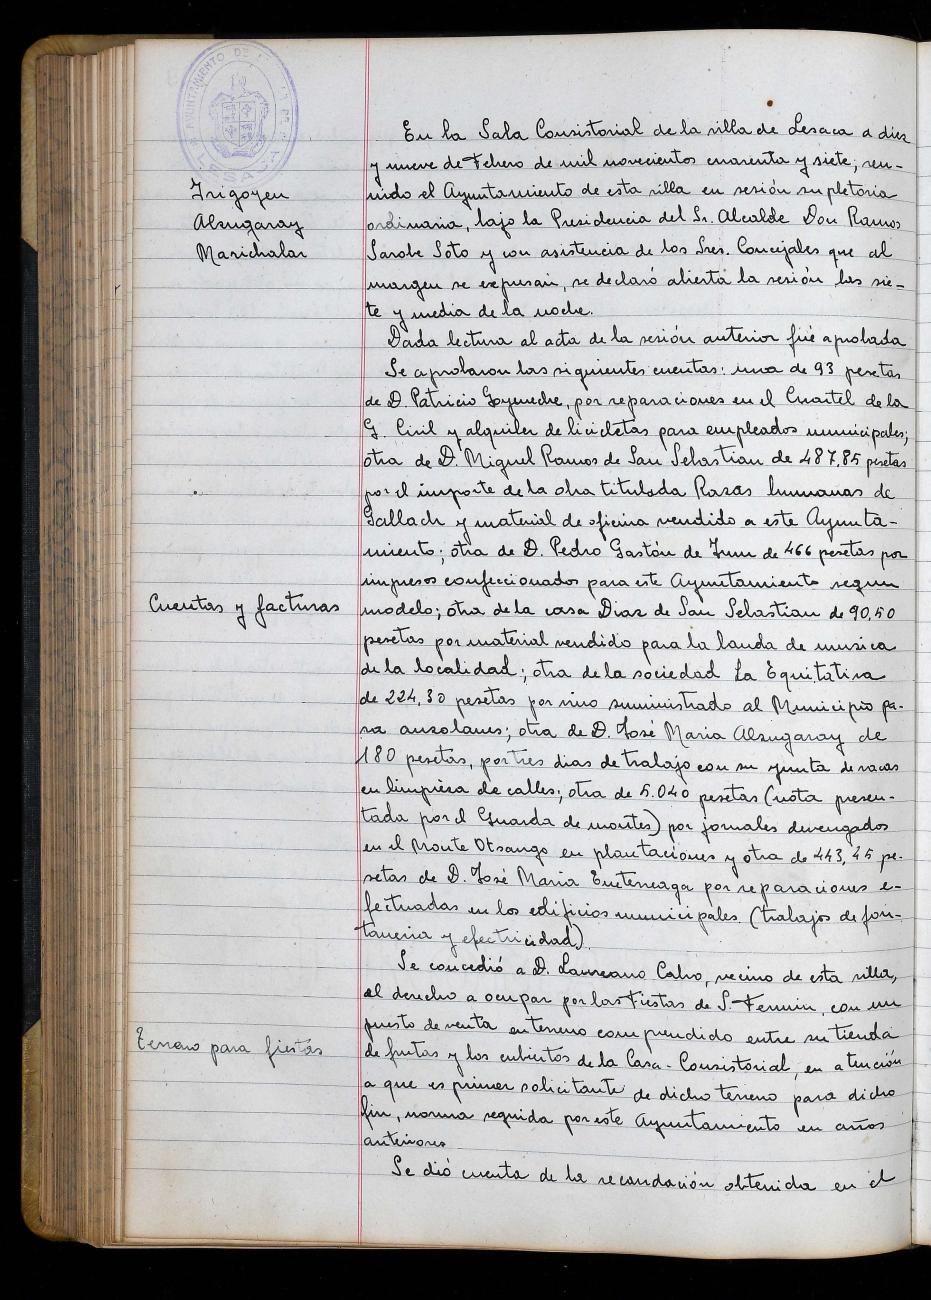 AYUNTAMIENTO DE
LESACA
Irigoyen
Alzugaray
Marichalar
En la Sala Consistorial de la villa de Lesaca a diez
y nueve de Febrero de mil novecientos cuarenta y siete, reu-
nido el Ayuntamiento de esta villa en sesión supletoria
ordinaria, bajo la Presidencia del Sr. Alcalde Don Ramos
Sarobe Soto y con asistencia de los Sres. Concejales que al
margen se expresan, se declaró abierta la sesión las sie-
te y media de la noche.
Dada lectura al acta de la sesión anterior fué aprobada
Se aprobaron las siguientes cuentas: una de 93 pesetas
de D. Patricio Goyeneche, por reparaciones en el Cuartel de la
G. Civil y alquiler de bicicletas para empleados municipales;
otra de D. Miguel Ramos de San Sebastian de 487,85 pesetas
por el importe de la obra titulada Razas humanas de
Gallach y material de oficina vendido a este Ayunta-
miento; otra de D. Pedro Gastón de Irun de 466 pesetas por
impresos confeccionados para este Ayuntamiento segun
Cuentas y facturas
modelo; otra de la casa Diaz de San Sebastian de 90,50
pesetas por material vendido para la banda de musica
de la localidad; otra de la sociedad La Equitativa
de 224,30 pesetas por vino suministrado al Municipio pa-
ra auzolanes; otra de D. José Maria Alzugaray de
180 pesetas, por tres dias de trabajo con su yunta de vacas
en limpieza de calles; otra de 5.040 pesetas (nota presen-
tada por el Guarda de montes) por jornales devengados
en el Monte Otsango en plantaciones y otra de 443,45 pe-
setas de D. José Maria Eneterreaga por reparaciones e-
fectuadas en los edificios municipales. (trabajos de fon-
taneria y efectricidad).
Se concedió a D. Laureano Calvo, vecino de esta villa,
el derecho a ocupar por las Fiestas de S. Fermin, con un
puesto de venta en terreno comprendido entre su tienda
Terreno para fiestas
de frutas y los cubiertos de la Casa-Consistorial, en atención
a que es primer solicitante de dicho terreno para dicho
fin, norma seguida por este Ayuntamiento en años
anteriores
Se dió cuenta de la recaudación obtenida en el